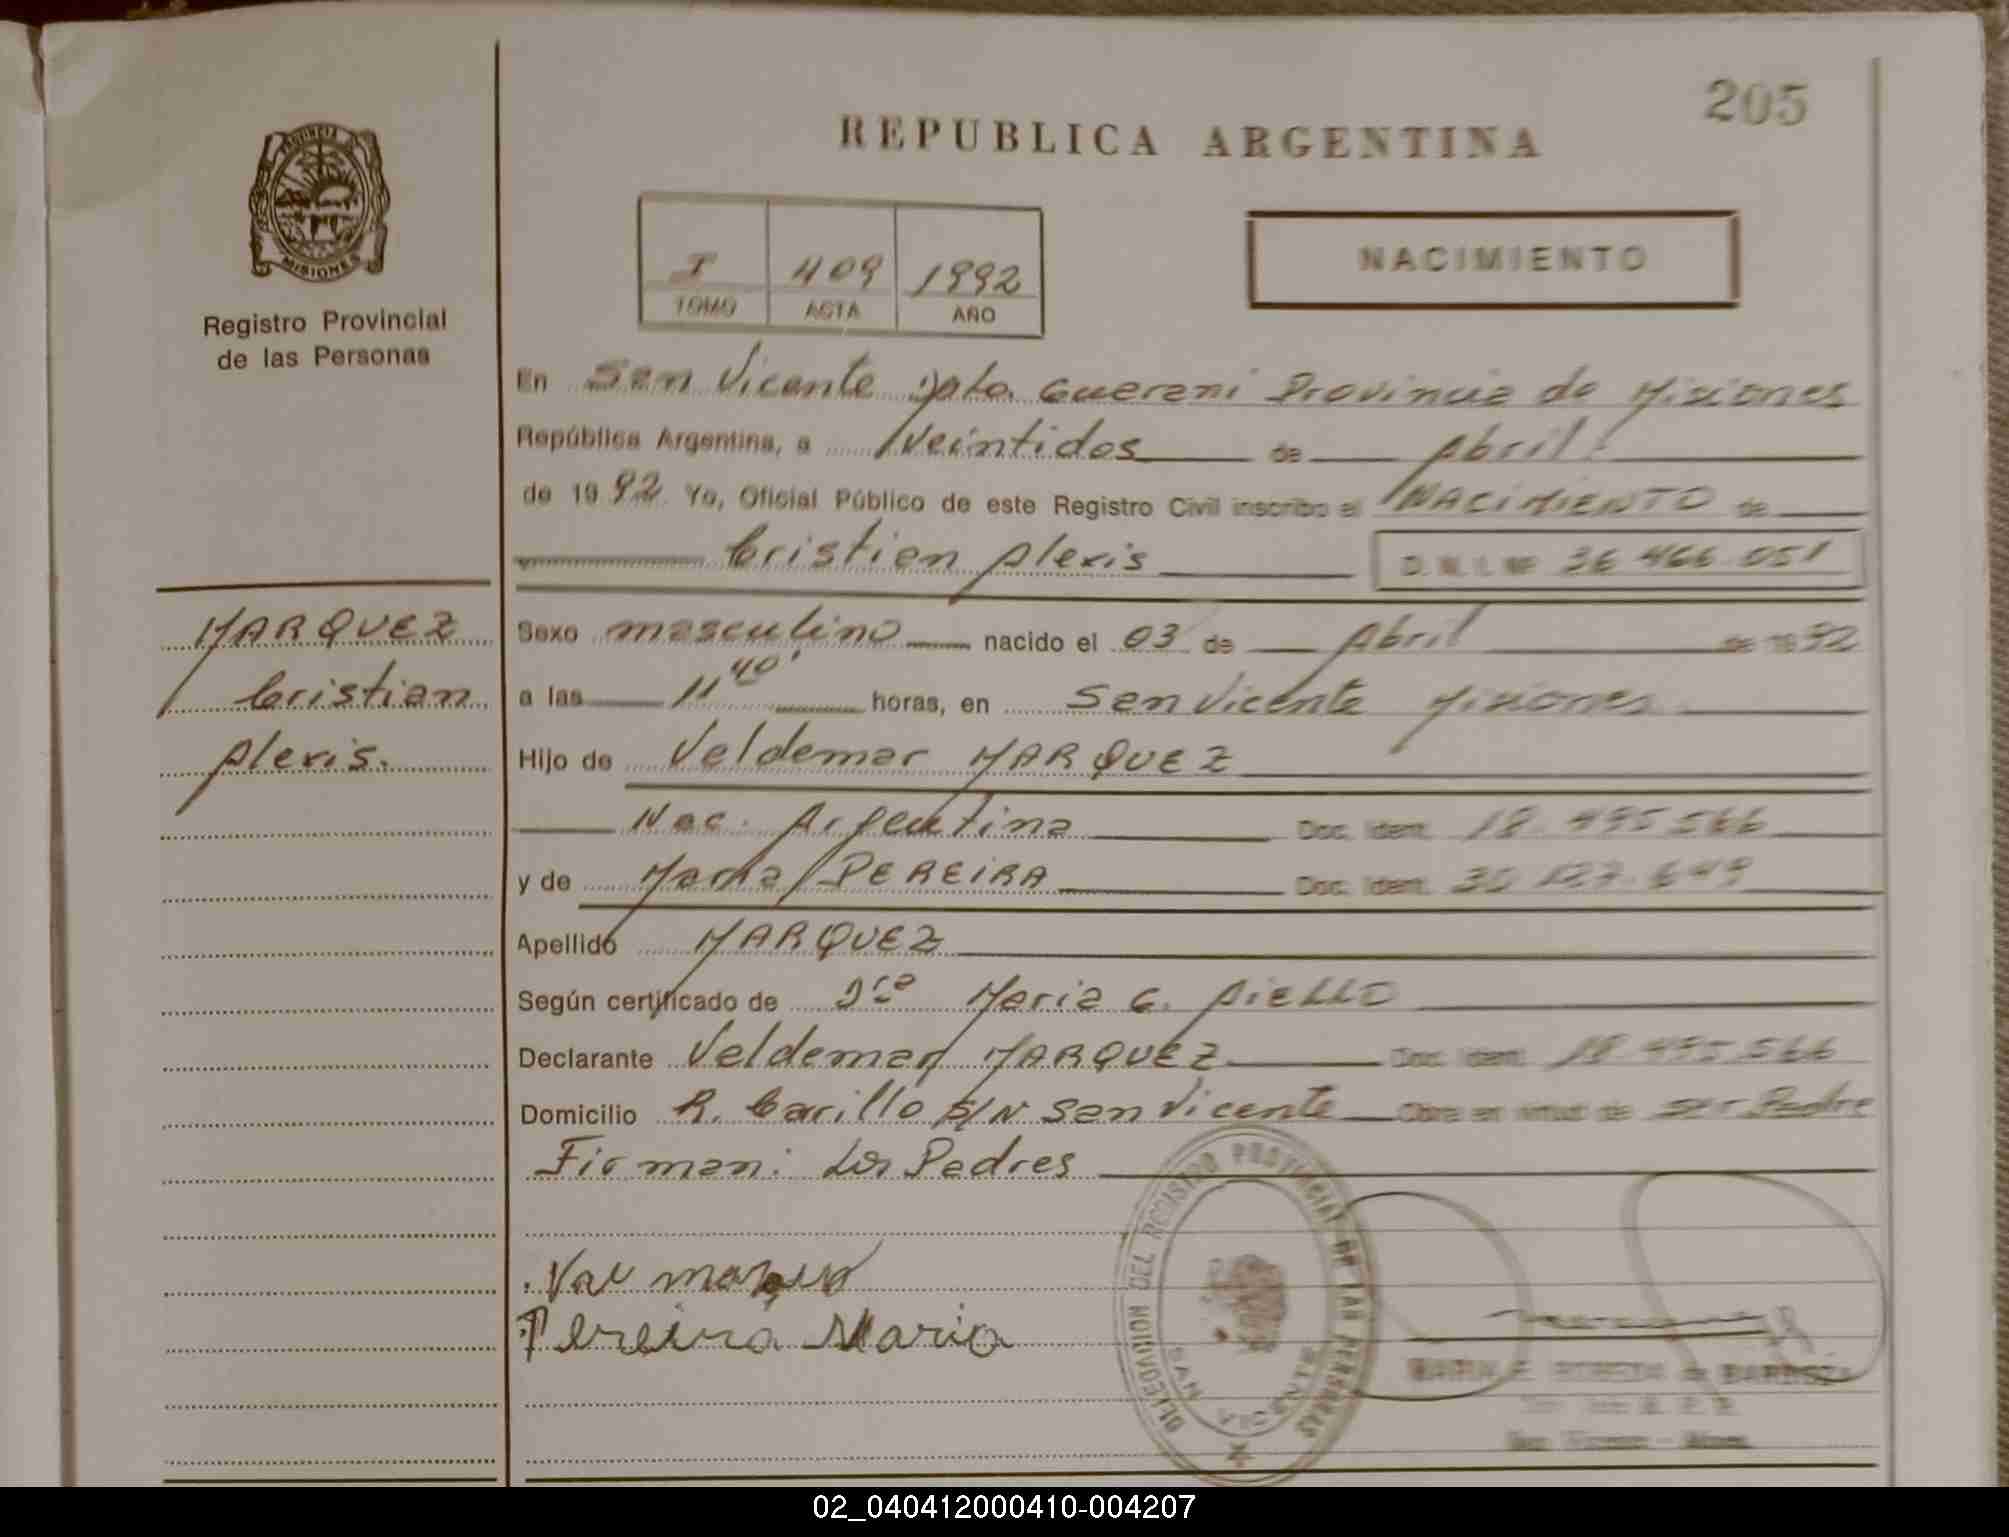 205
REPUBLICA ARGENTINA
PROVINCIA DE
MISIONES
Registro Provincial
de las Personas
I 409 1992
TOMO ACTA AÑO
NACIMIENTO
En San Vicente Dpto. Guarani Provincia de Misiones
República Argentina, a veintidos de Abril
de 1992 Yo, Oficial Público de este Registro Civil inscribo el NACIMIENTO de
Cristian Alexis D.N.I. Nº 36 466.051
MARQUEZ
Cristian
Alexis.
Sexo masculino nacido el 03 de Abril de 1992
a las 11 40' horas, en San Vicente Misiones
Hijo de Valdemar MARQUEZ
Nac. Argentina Doc. Ident. 18.495.566
y de Maria PEREIRA Doc. Ident.
Apellido MARQUEZ
Según certificado de Dra Maria G. AIELLO
Declarante Valdemar MARQUEZ Doc. Ident. 18.495.566
Domicilio R. Carillo S/N San Vicente Obra en virtud de ser Padre
Firman: Los Padres
Pereira Maria
DELEGACION DEL REGISTRO PROVINCIAL DE LAS PERSONAS
SAN VICENTE
MARIA E. de
02_040412000410-004207